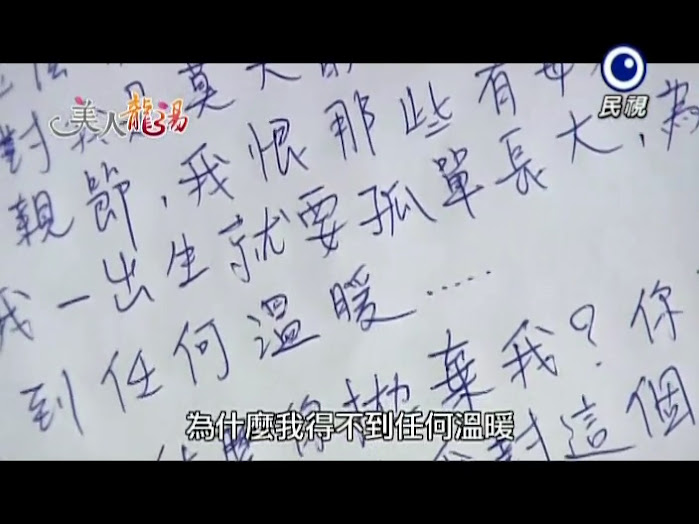 美人龍湯
民視
對我是莫大的
親節，我恨那些有母
我一出生就要孤單長大，為
到任何溫暖……
什麼你拋棄我？你
對這個
為什麼我得不到任何溫暖